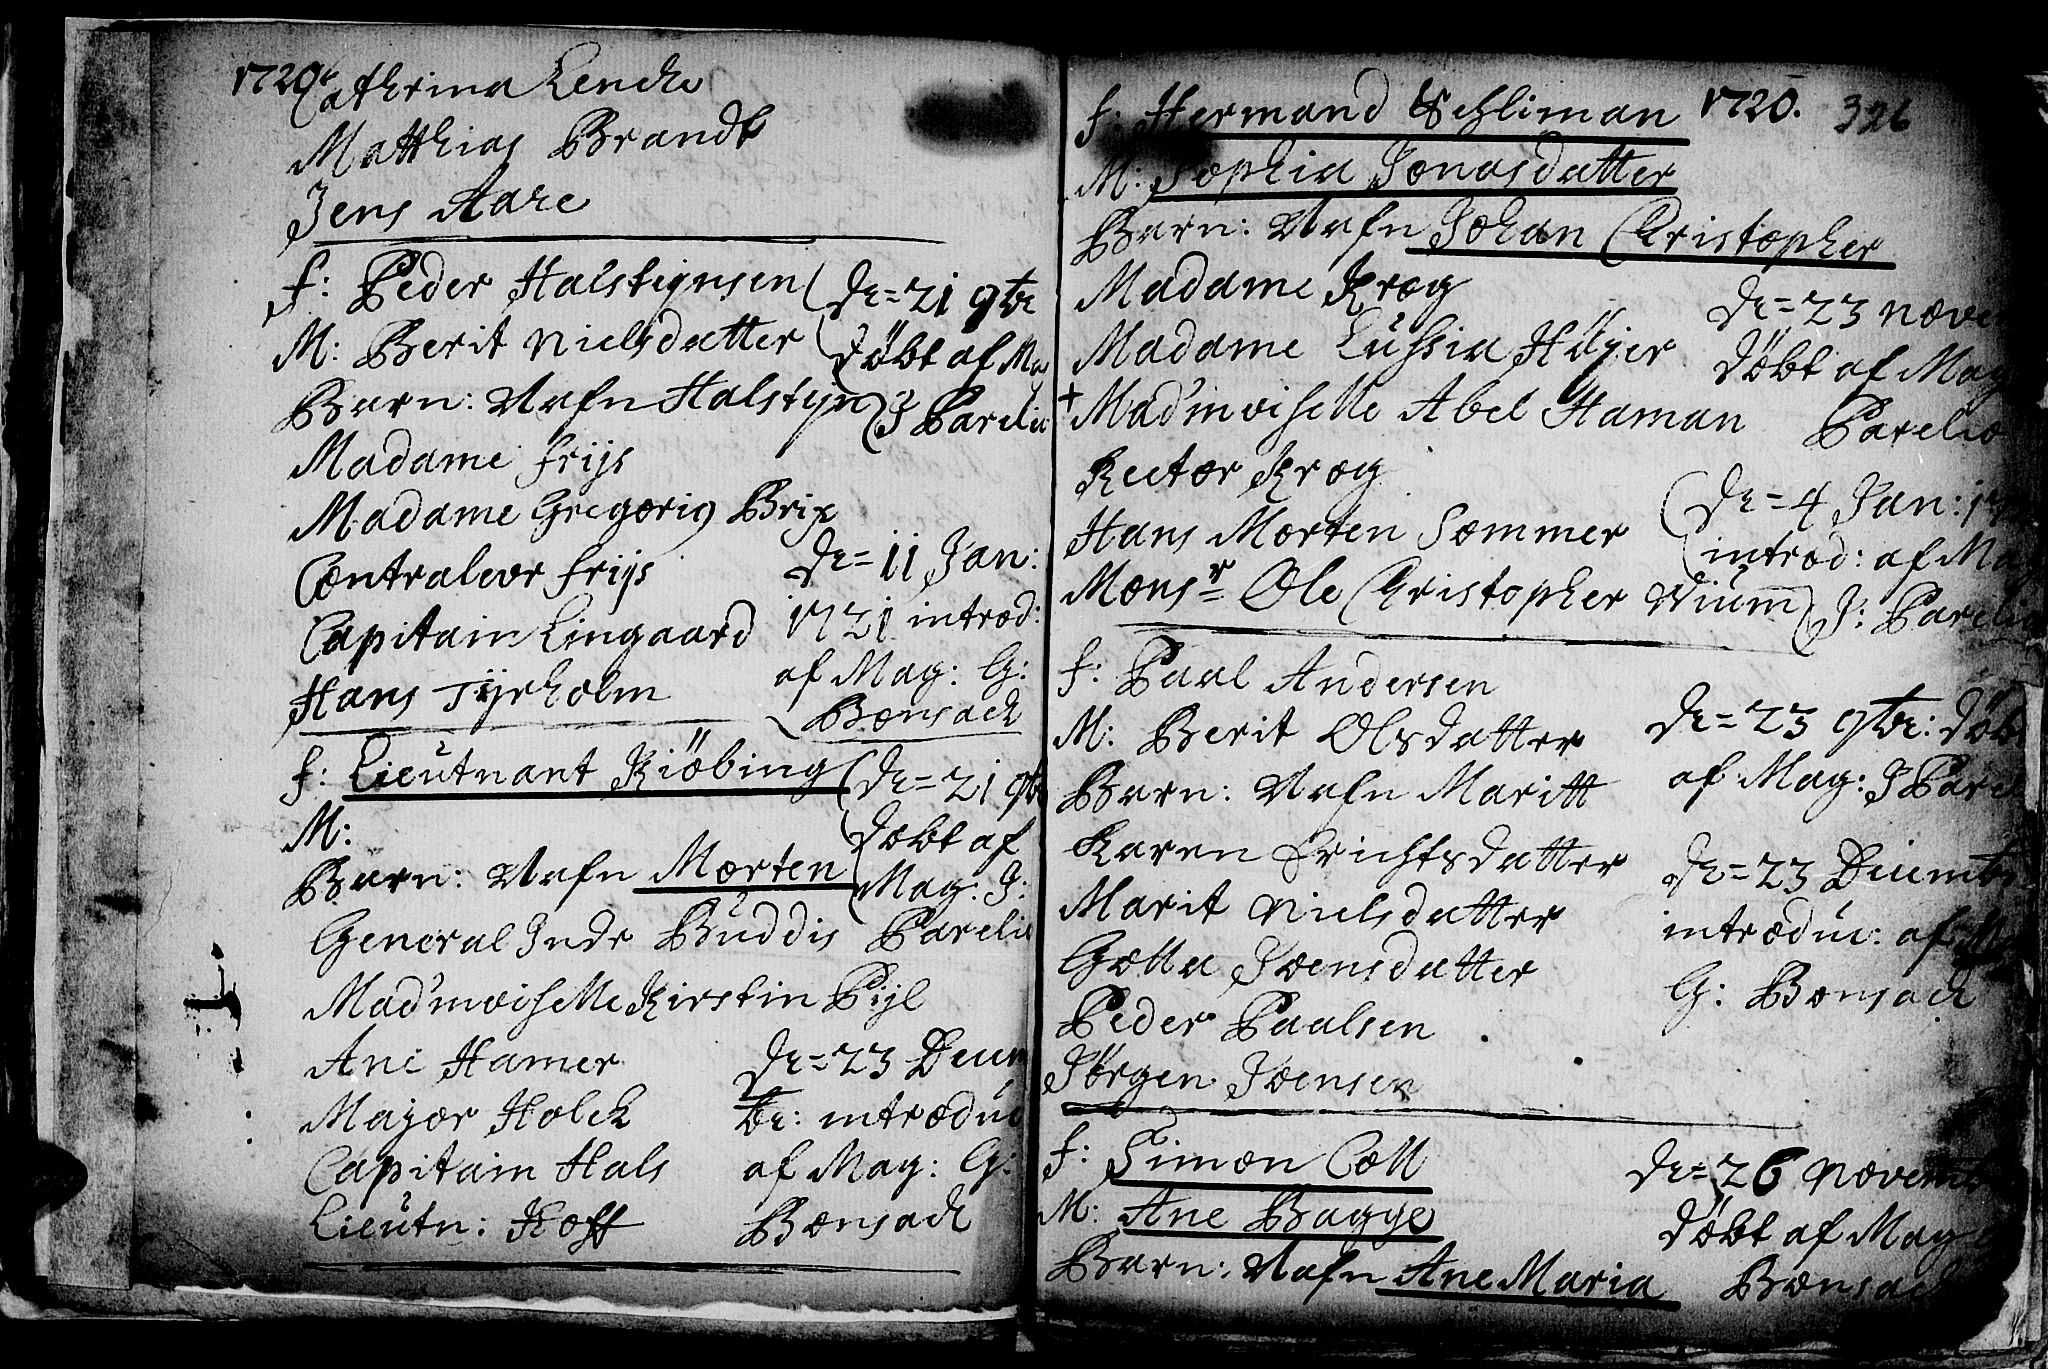 1720 Cathrina Lencke
Matthias Brandt
Jens Aare
f: Peder Halsteynsen
M: Berit Nielsdatter
Barn: Nafn Halsteyn
Madame friis
Madame Gregorig Brix
Contraleur friis
Capitain Lingaard
Hans Tyrholm
de = 21 9br
döbt af Ma
J Parelio
de = 11 Jan:
1721 introd:
af Mag: G:
Bonsach
f: Lieutnant Kiöbing
M:
Barn: Nafn Morten
General Inde Buddis
Mad'moiselle Kirstin Pijl
Ane Hamer
Major Holck
Capitain Hals
Lieutn: Hoff
de = 21 9b
döbt af
Mag: J:
Parelio
de = 23 Decem
br: introdu
af Mag: G:
Bonsach
1720. 326
f: Hermand Schliman
M: Sophia Jonasdatter
Barn: Nafn Johan Christopher
Madame Krog
Madame Lussia Höyer
+ Mad'moiselle Abel Haman
Rector Krog
Hans Morten Sommer
Monsr Ole Christopher Wium
de = 23 nove
döbt af Mag
Parelio
de = 4 Jan: 17
introd: af Ma
J: Parelio
f: Paul Andersen
M: Berit Olsdatter
Barn: Nafn Maritt
Karen Erichsdatter
Marit Nielsdatter
Golla Joensdatter
Peder Paalsen
Jörgen Joensen
de = 23 9br: döb
af Mag: J Parel
de = 23 Decemb
introduc: af Ma
G: Bonsach
f: Simon Coll
M: Ane Bagge
Barn: Nafn Ane Maria
de = 26 Novemb
döbt af Mag
Bonsach